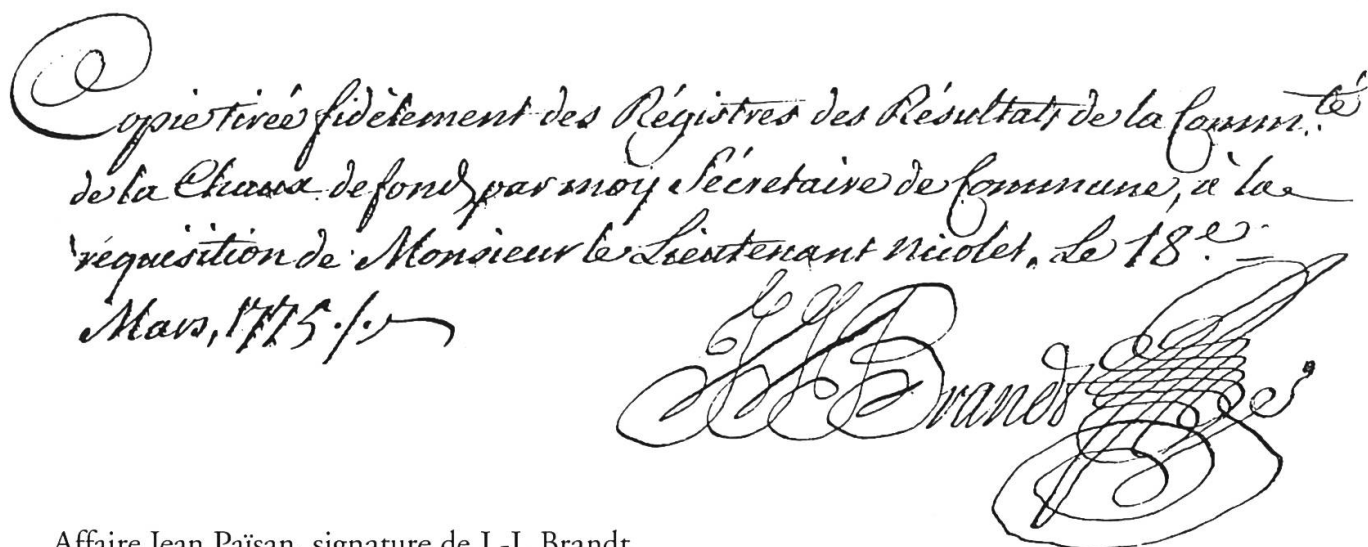 Copie tirée fidèlement des Régistres des Résultats de la Comm.té
de la Chaux defond, par moy Sécretaire de Commune, à la
réquisition de Monsieur le Lieutenant Nicolet. Le 18.e
Mars, 1775./.
JJBrandt
Affaire Jean Païsan, signature de J.-J. Brandt